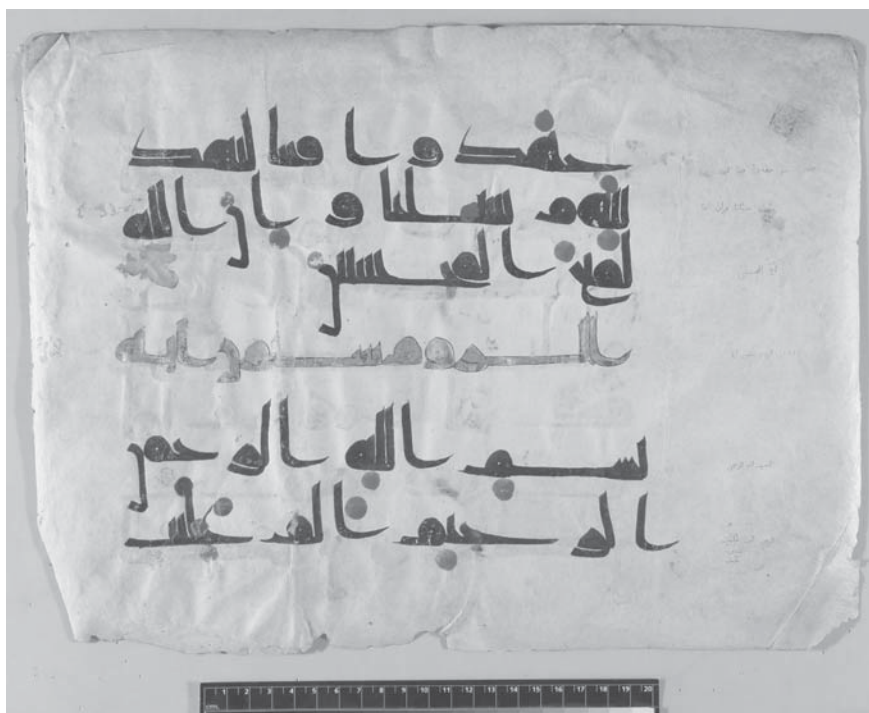 جهدوا فينا لنهد
ينهم سبلنا وان الله
لمع المحسنين
الروم ستون ايه
بسم الله الرحمن
الرحيم الم غلبت
1 2 3 4 5 6 7 8 9 10 11 12 13 14 15 16 17 18 19 20